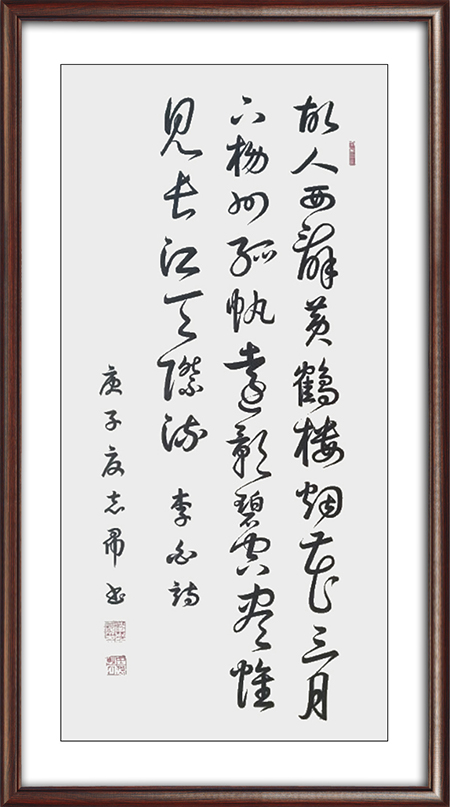 故人西辭黄鶴楼烟花三月
下揚州孤帆遠影碧空盡惟
見長江天際流 李白詩
庚子夏志書